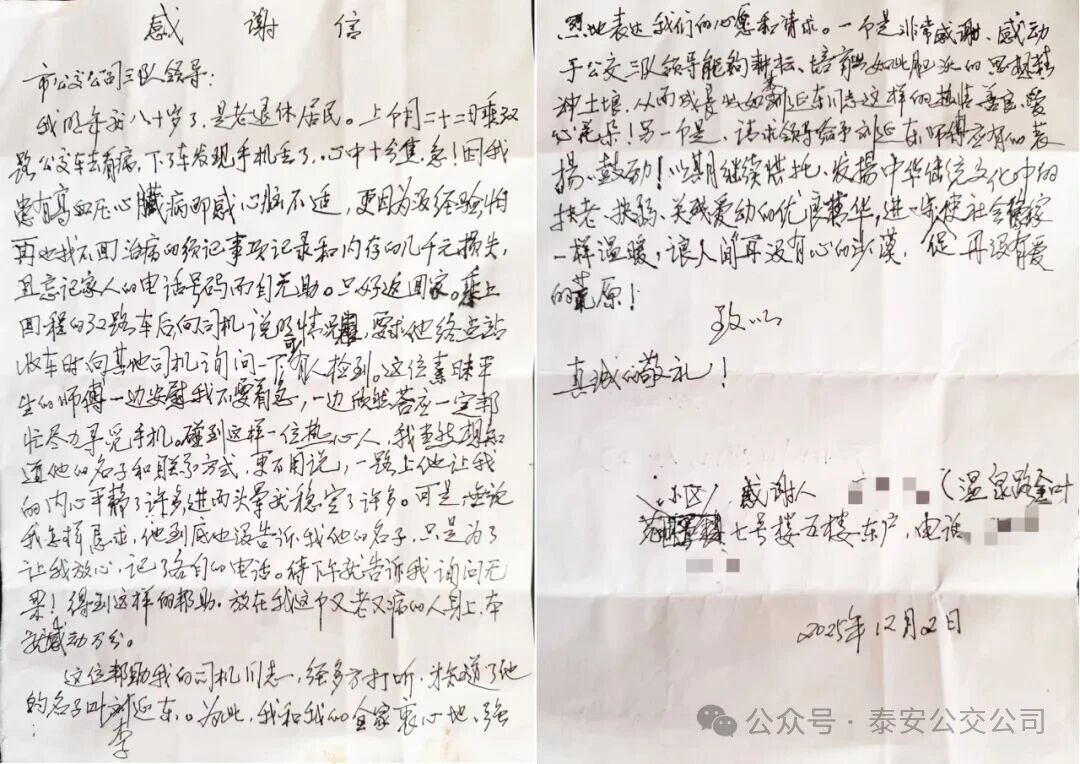 感谢信
市公交公司三队领导：
我明年就八十岁了，是老退休居民。上个月二十二日乘32
路公交车去看病，下了车发现手机丢了，心中十分焦急！因我
患有高血压心臟病即感心脑不适，更因为没经验怕
再也找不回治病的须记事项记录和内存的几千元损失，
且忘记家人的电话号码而自无助。只好返回家。乘上
回程的32路车后向司机说明情况，要求他终点站
收车时向其他司机询问一下有人检到。这位素昧平
生的师傅一边安慰我不要着急，一边欣然答应一定帮
忙尽力寻觅手机。碰到这样一位热心人，我当然想知
道他的名子和联系方式，更不用说，一路上他让我
的内心平静了许多进而头晕也稳定了许多。可是论说
我怎样恳求，他到底也没告诉我他的名子，只是为了
让我放心，记了各自的电话。待下午就告诉我询问无
果！得到这样的帮助。放在我这个又老又病的人身上本
就感动万分。
这位帮助我的司机同志，经多方打听，才知道了他
的名子叫刘延东。为此，我和我的全家衷心地、强
李
烈地表达我们的心愿和请求。一个是非常感谢、感动
于公交三队领导能够耕耘、培育出如此肥沃的思想精
神土壤，从而成长出如刘延东同志这样的热情善良、爱
心花朵！另一个是，请求领导给予刘延东师傅应有的表
揚、鼓动！以期继续烘托、发揚中华传统文化中的
扶老、扶弱、关残爱幼的优良精华，进一步使社会像家
一样温暖，让人间再没有心的沙漠，促再没有爱
的荒原！
致以
真诚的敬礼！
小区 感谢人（温泉路金叶
七号楼五楼东户，电话
2025年12月2日
公众号·泰安公交公司